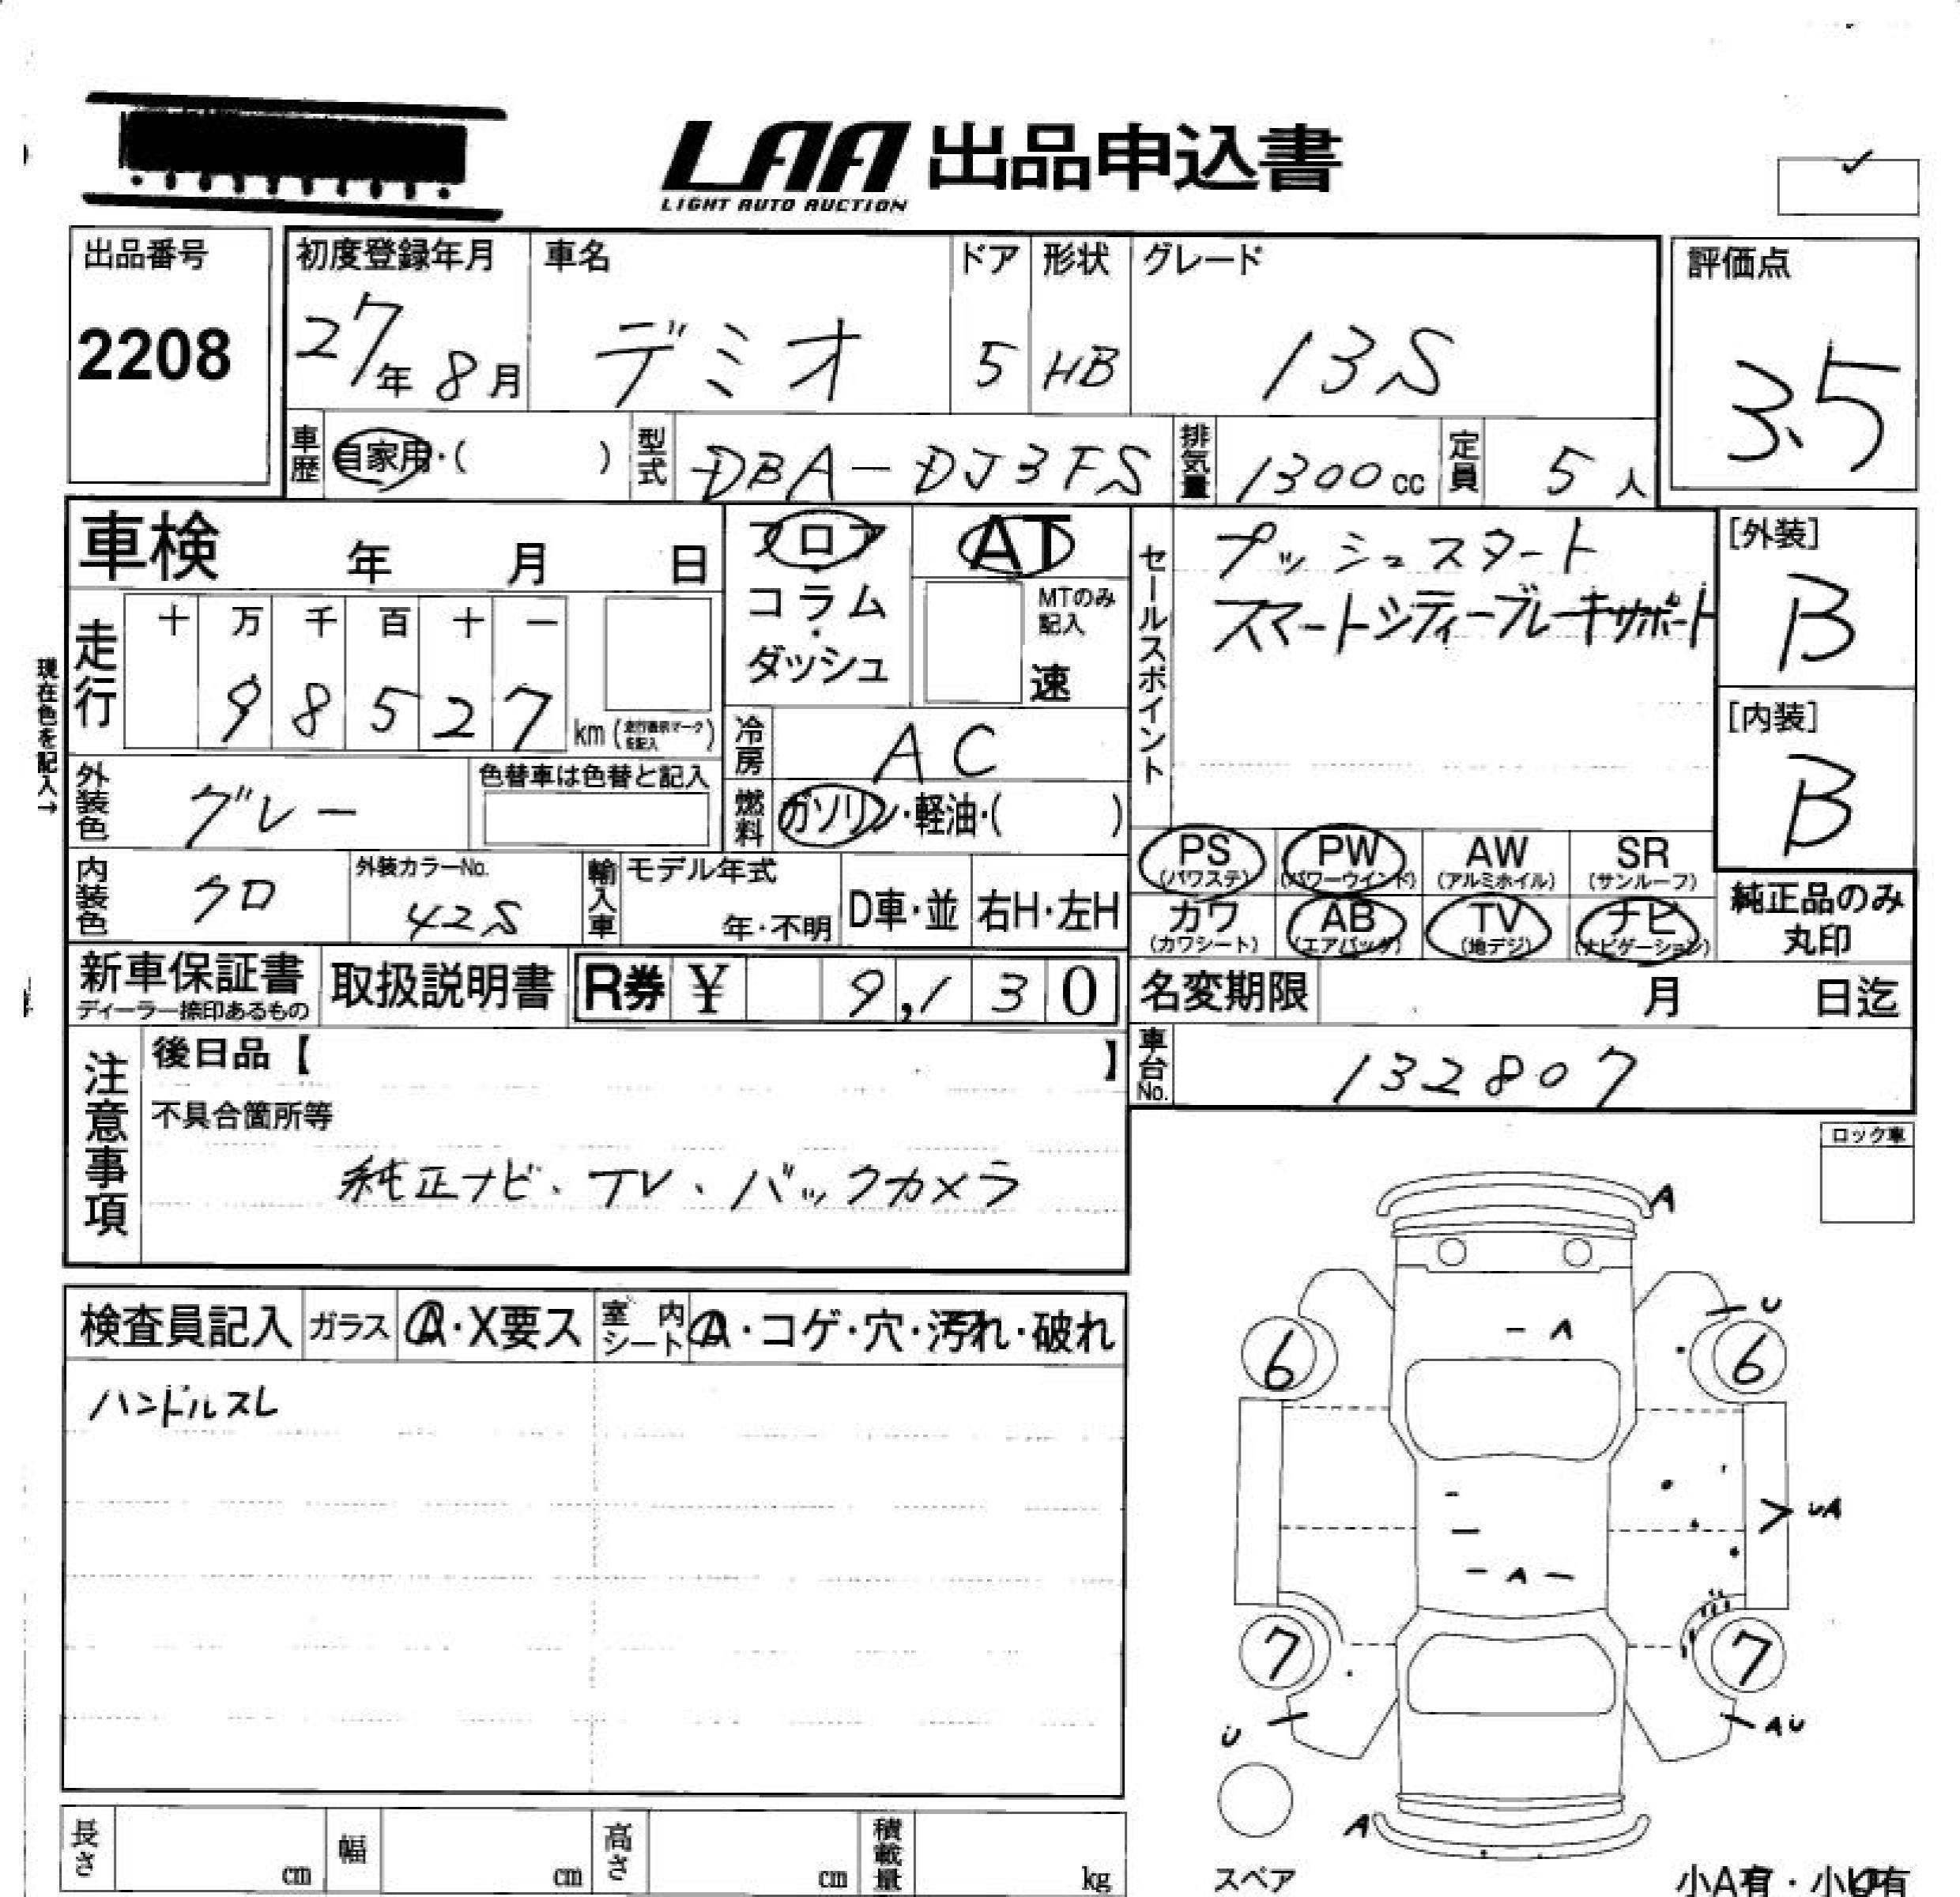 LAA 出品申込書
LIGHT AUTO AUCTION
出品番号
2208
初度登録年月
27年 8月
車名
デミオ
ドア
5
形状
HB
グレード
13S
評価点
3.5
車歴
自家用・( )
型式
DBA-DJ3FS
排気量
1300cc
定員
5人
車検 年 月 日
フロア
・
コラム
・
ダッシュ
AT
MTのみ
記入
速
セールスポイント
プッシュスタート
スマートシティーブレーキサポート
[外装]
B
[内装]
B
現在色を記入→
走行
十 万 千 百 十 一
9 8 5 2 7
km (走行書換マークを記入)
冷房
AC
外装色
グレー
色替車は色替と記入
燃料
ガソリン・軽油・( )
内装色
クロ
外装カラーNo.
42S
輸入車
モデル年式
年・不明
D車・並
右H・左H
PS
(パワステ)
PW
(パワーウインド)
AW
(アルミホイル)
SR
(サンルーフ)
カワ
(カワシート)
AB
(エアバッグ)
TV
(地デジ)
ナビ
(ナビゲーション)
純正品のみ
丸印
新車保証書
ディーラー捺印あるもの
取扱説明書
R券 ¥ 9,130
名変期限 月 日迄
注意事項
後日品【 】
不具合箇所等
純正ナビ、TV、バックカメラ
車台No.
132807
ロック車
検査員記入
ガラス
A・X要ス
室内
シート
A・コゲ・穴・汚れ・破れ
ハンドルスレ
A
U
A
6
6
UA
A
7
7
U
AU
A
スペア
小A有・小U有
長さ cm
幅 cm
高さ cm
積載量 kg